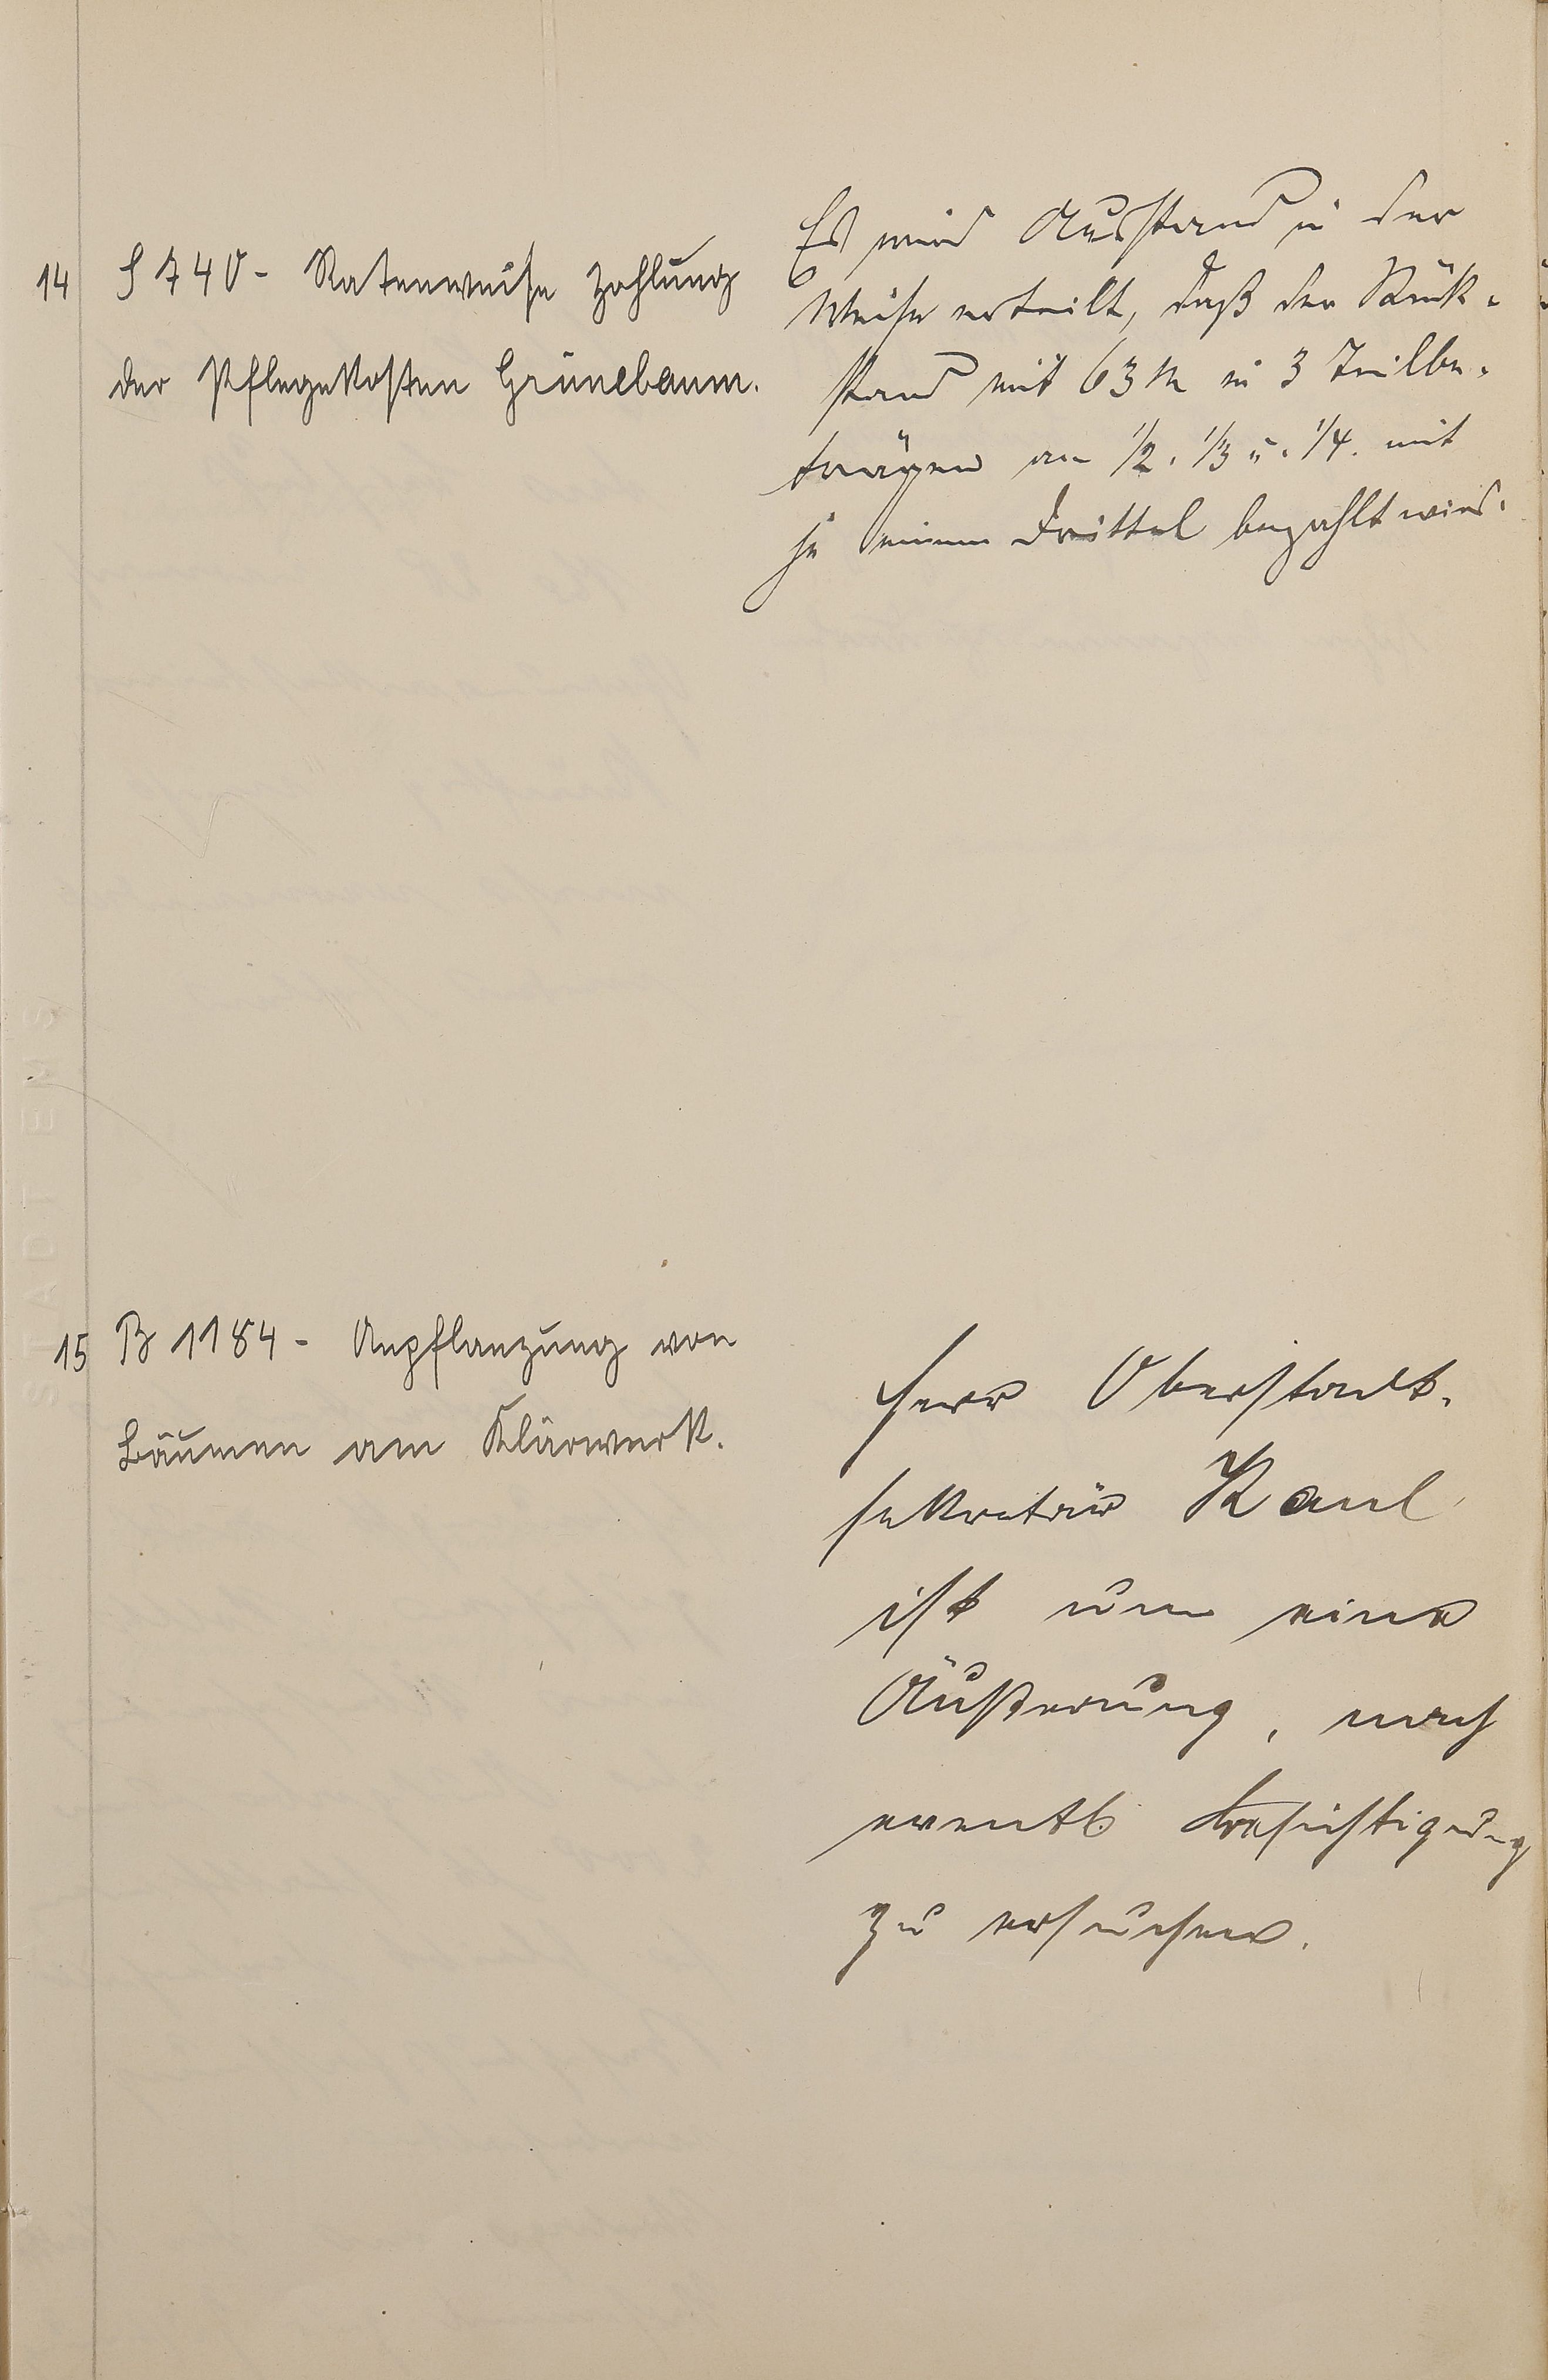 14 S 740 - Ratenweise Zahlung
der Pflegekosten Grünebaum.
Es wird Ausstand in der
Weise erteilt, daß der Rück-
stand mit 63 M in 3 Teilbe-
trägen am 1/2. 1/3 u. 1/4. mit
je einem Drittel bezahlt wird.
15 B 1184 - Anpflanzung von
Bäumen am Klärwerk.
Herr Oberstadt-
sekretär Kaul
ist um eine
Äußerung, nach
eventl. Besichtigung
zu ersuchen.
STADT EMS